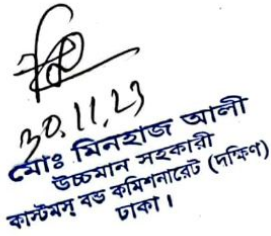 30.11.23
মোঃ মিনহাজ আলী
উচ্চমান সহকারী
কাস্টমস্ বন্ড কমিশনারেট (দক্ষিণ)
ঢাকা।